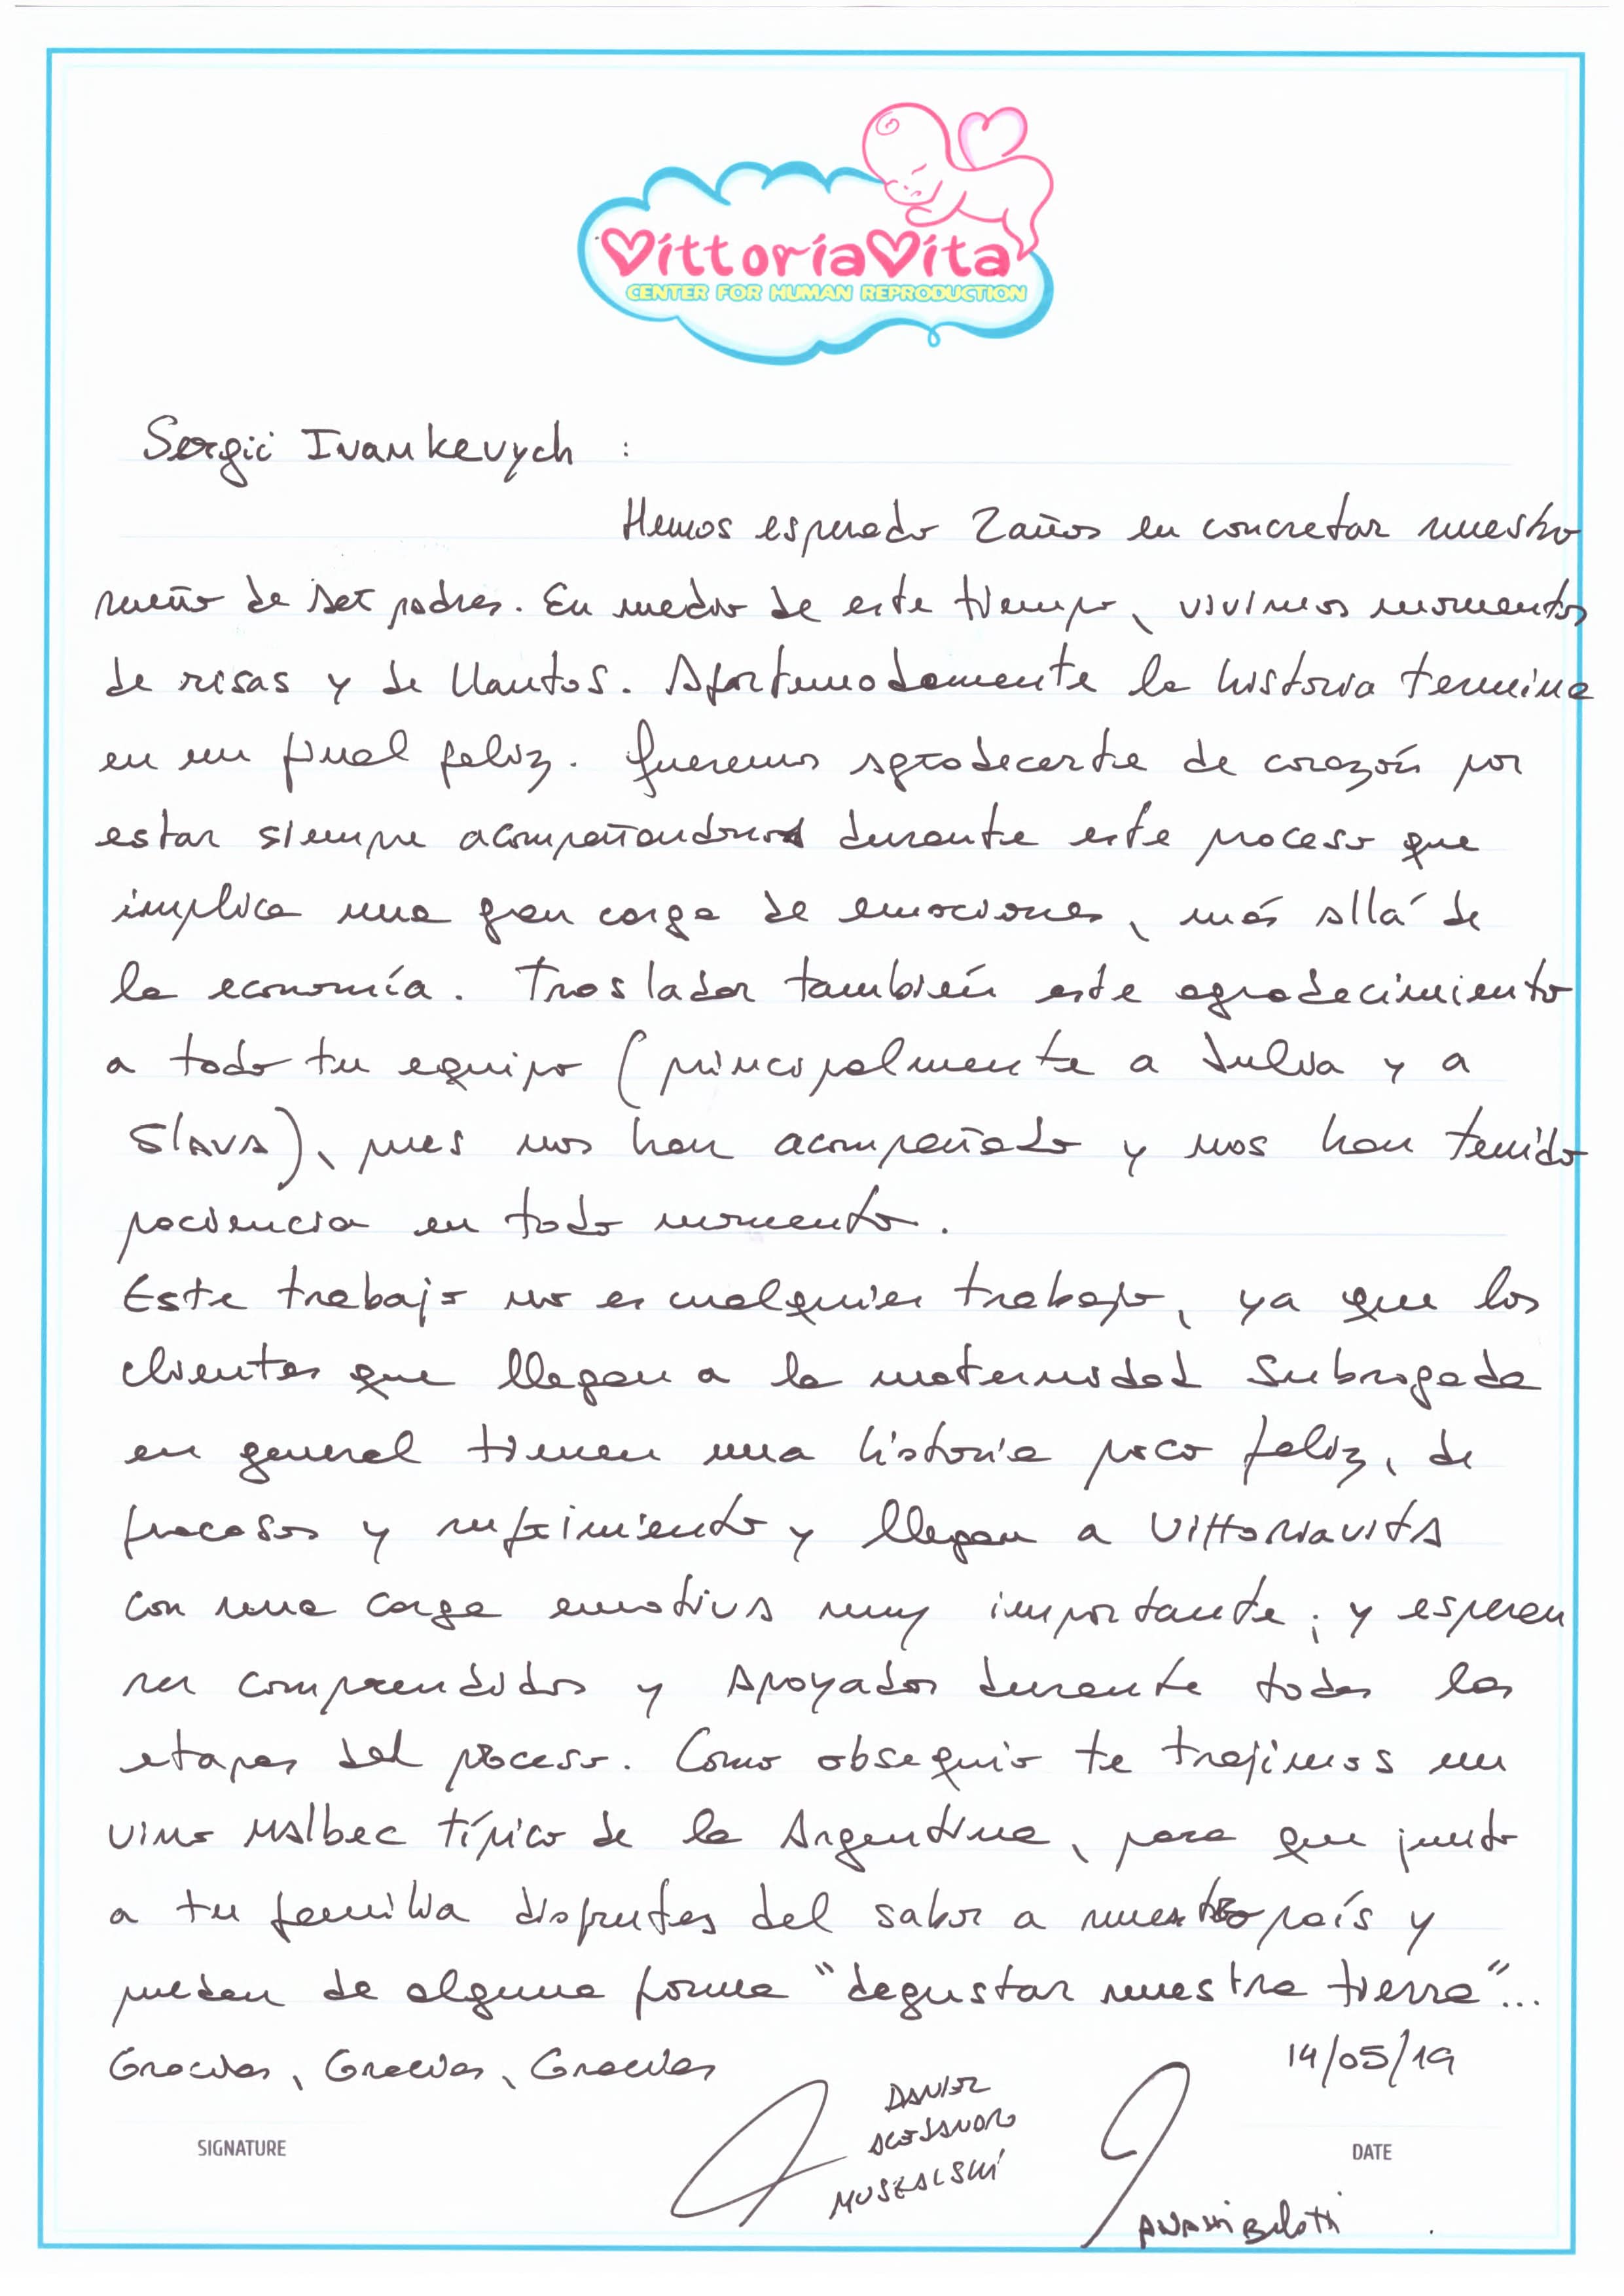 VittoriaVita
CENTER FOR HUMAN REPRODUCTION
Sergii Ivankevych :
Hemos esperado 2 años en concretar nuestro
sueño de ser padres. En medio de este tiempo, vivimos momentos
de risas y de llantos. Afortunadamente la historia termina
en un final feliz. Queremos agradecerte de corazón por
estar siempre acompañandonos durante este proceso que
implica una gran carga de emociones, más allá de
la economía. Trasladar también este agradecimiento
a todo tu equipo (principalmente a Julia y a
Slava), pues nos han acompañado y nos han tenido
paciencia en todo momento.
Este trabajo no es cualquier trabajo, ya que los
clientes que llegan a la maternidad subrogada
en general tienen una historia poco feliz, de
fracasos y sufrimiento y llegan a Vittoriavita
con una carga emotiva muy importante; y esperan
ser comprendidos y apoyados durante todas las
etapas del proceso. Como obsequio te trajimos un
vino Malbec típico de la Argentina, para que junto
a tu familia disfrutes del sabor a nuestro país y
puedan de alguna forma "degustar nuestra tierra"...
Gracias, Gracias, Gracias
14/05/19
DANIEL
ALEJANDRO
SIGNATURE
DATE